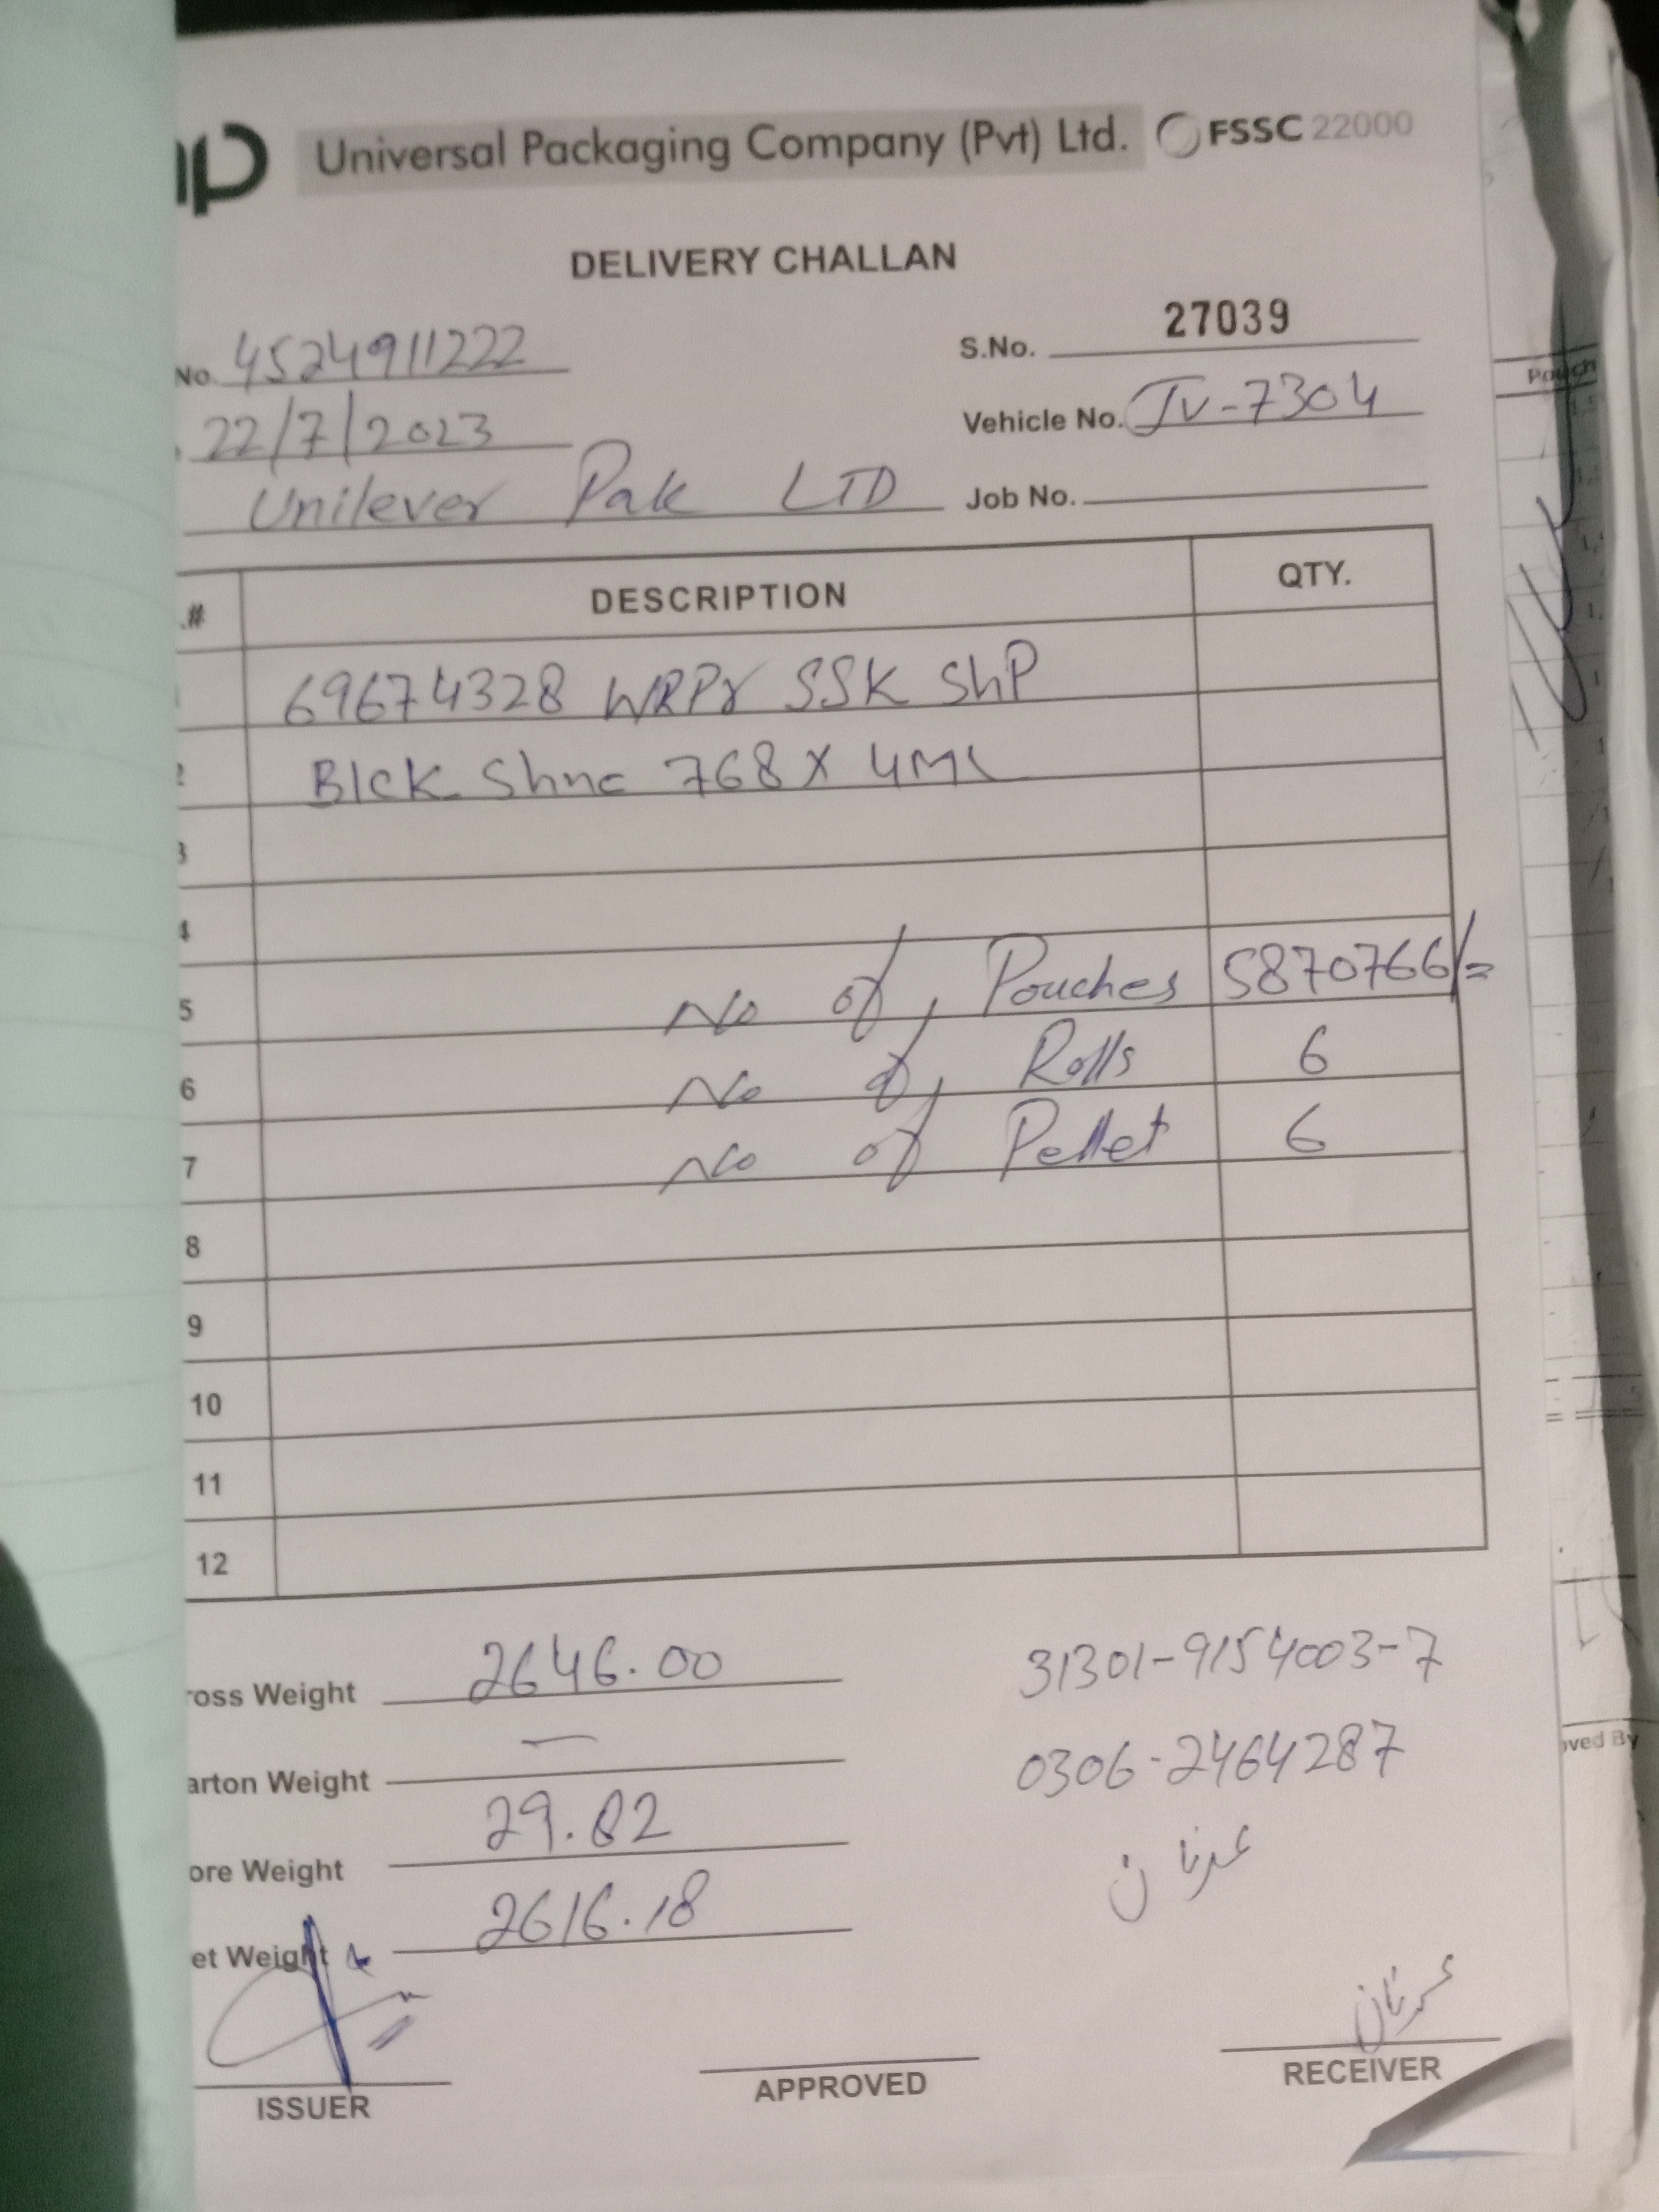 up Universal Packaging Company (Pvt) Ltd. FSSC 22000
DELIVERY CHALLAN
No. 4524911222 S.No. 27039
22/7/2023 Vehicle No. JV-7304
Unilever Pak LTD Job No.
.# DESCRIPTION QTY.
69674328 WRPr SSK ShP
2 Blck Shne 768 X 4ML
3
4
5 No of, Pouches 5870766/=
6 No of, Rolls 6
7 No of Pellet 6
8
9
10
11
12
ross Weight 2646.00 31301-9154003-7
arton Weight — 0306-2464287
ore Weight 29.82 عدنان
et Weight 2616.18
عدنان
ISSUER APPROVED RECEIVER
Pouch
oved By